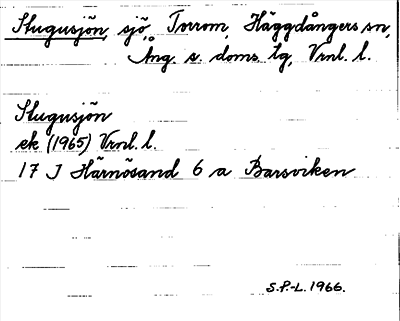 Stugusjön, sjö, Torrom, Häggdångers sn,
Ång. s. doms. lg, Vrnl. l.
Stugusjön
ek (1965) Vrnl. l.
17 J Härnösand 6 a Barsviken
S.P-L. 1966.